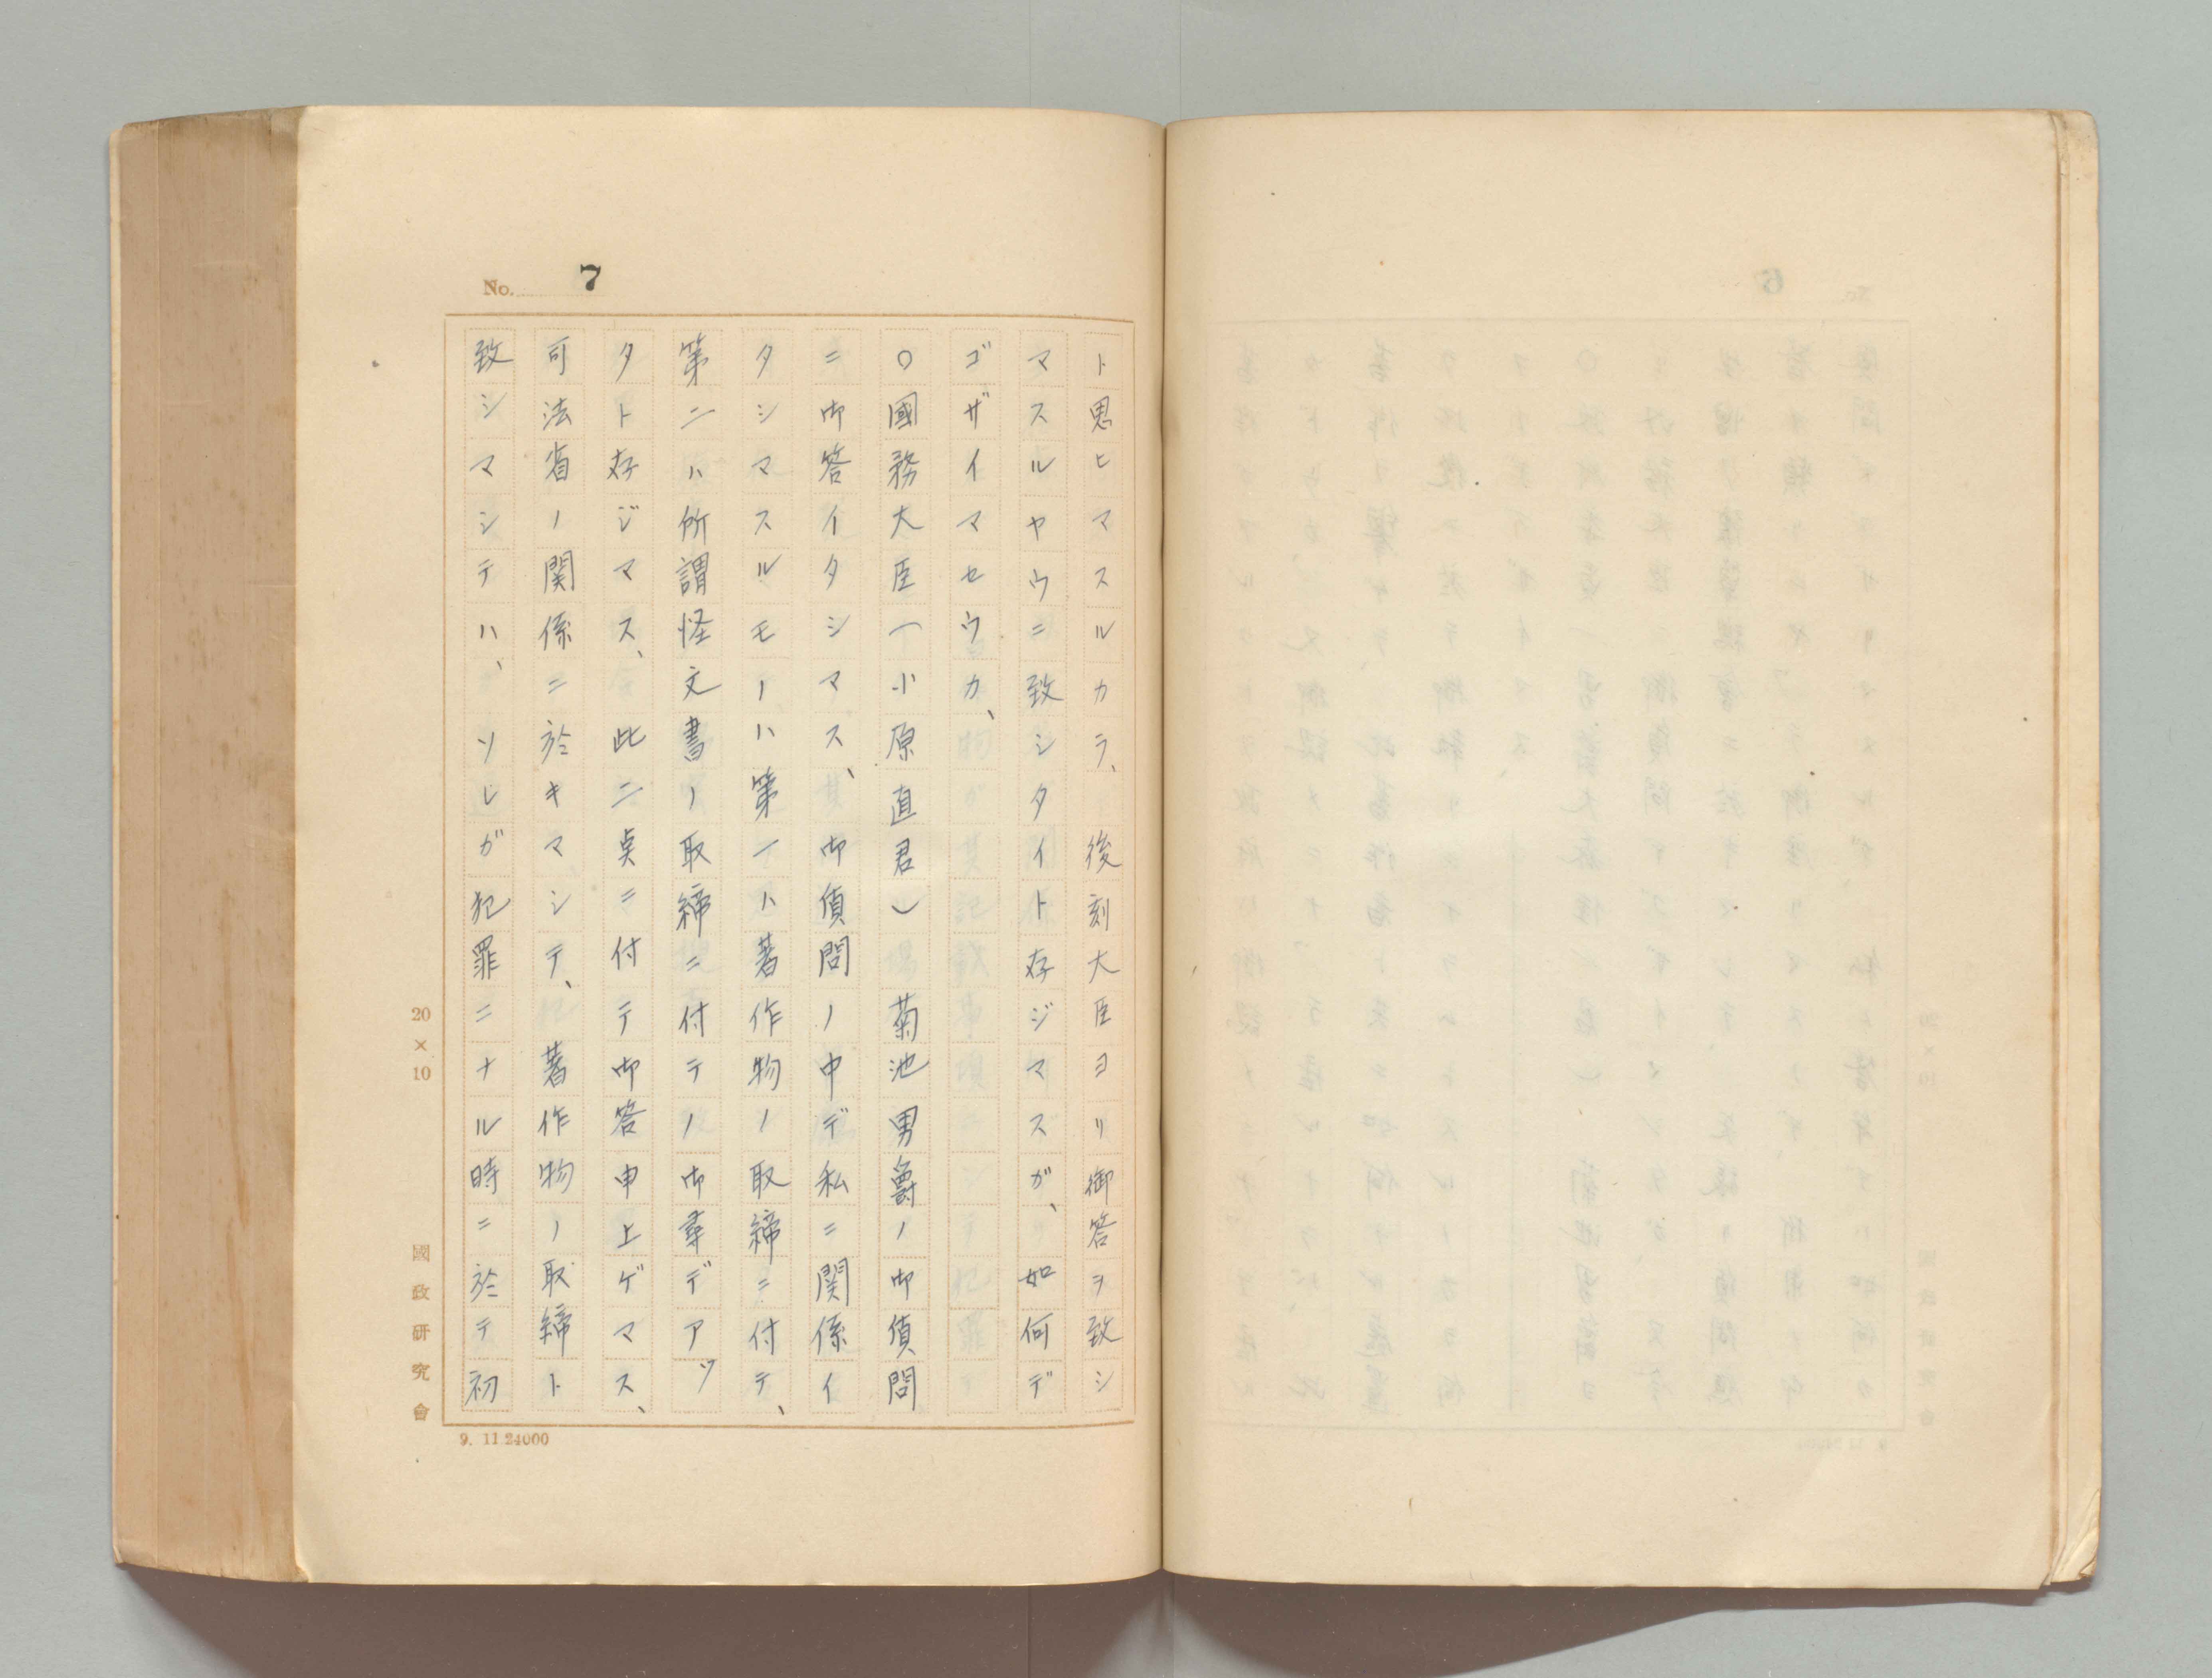 No. 7
ト思ヒマスルカラ、後刻大臣ヨリ御答ヲ致シ
マスルヤウニ致シタイト存ジマスガ、如何デ
ゴザイマセウカ、
○國務大臣（小原直君）菊池男爵ノ御質問
ニ御答イタシマス、御質問ノ中デ私ニ関係イ
タシマスルモノハ第一ハ著作物ノ取締ニ付テ、
第二ハ所謂怪文書ノ取締ニ付テノ御尋デアツ
タト存ジマス、此二点ニ付テ御答申上ゲマス、
司法省ノ関係ニ於キマシテ、著作物ノ取締ト
致シマシテハ、ソレガ犯罪ニナル時ニ於テ初
20×10
國政研究會
9. 11.24000